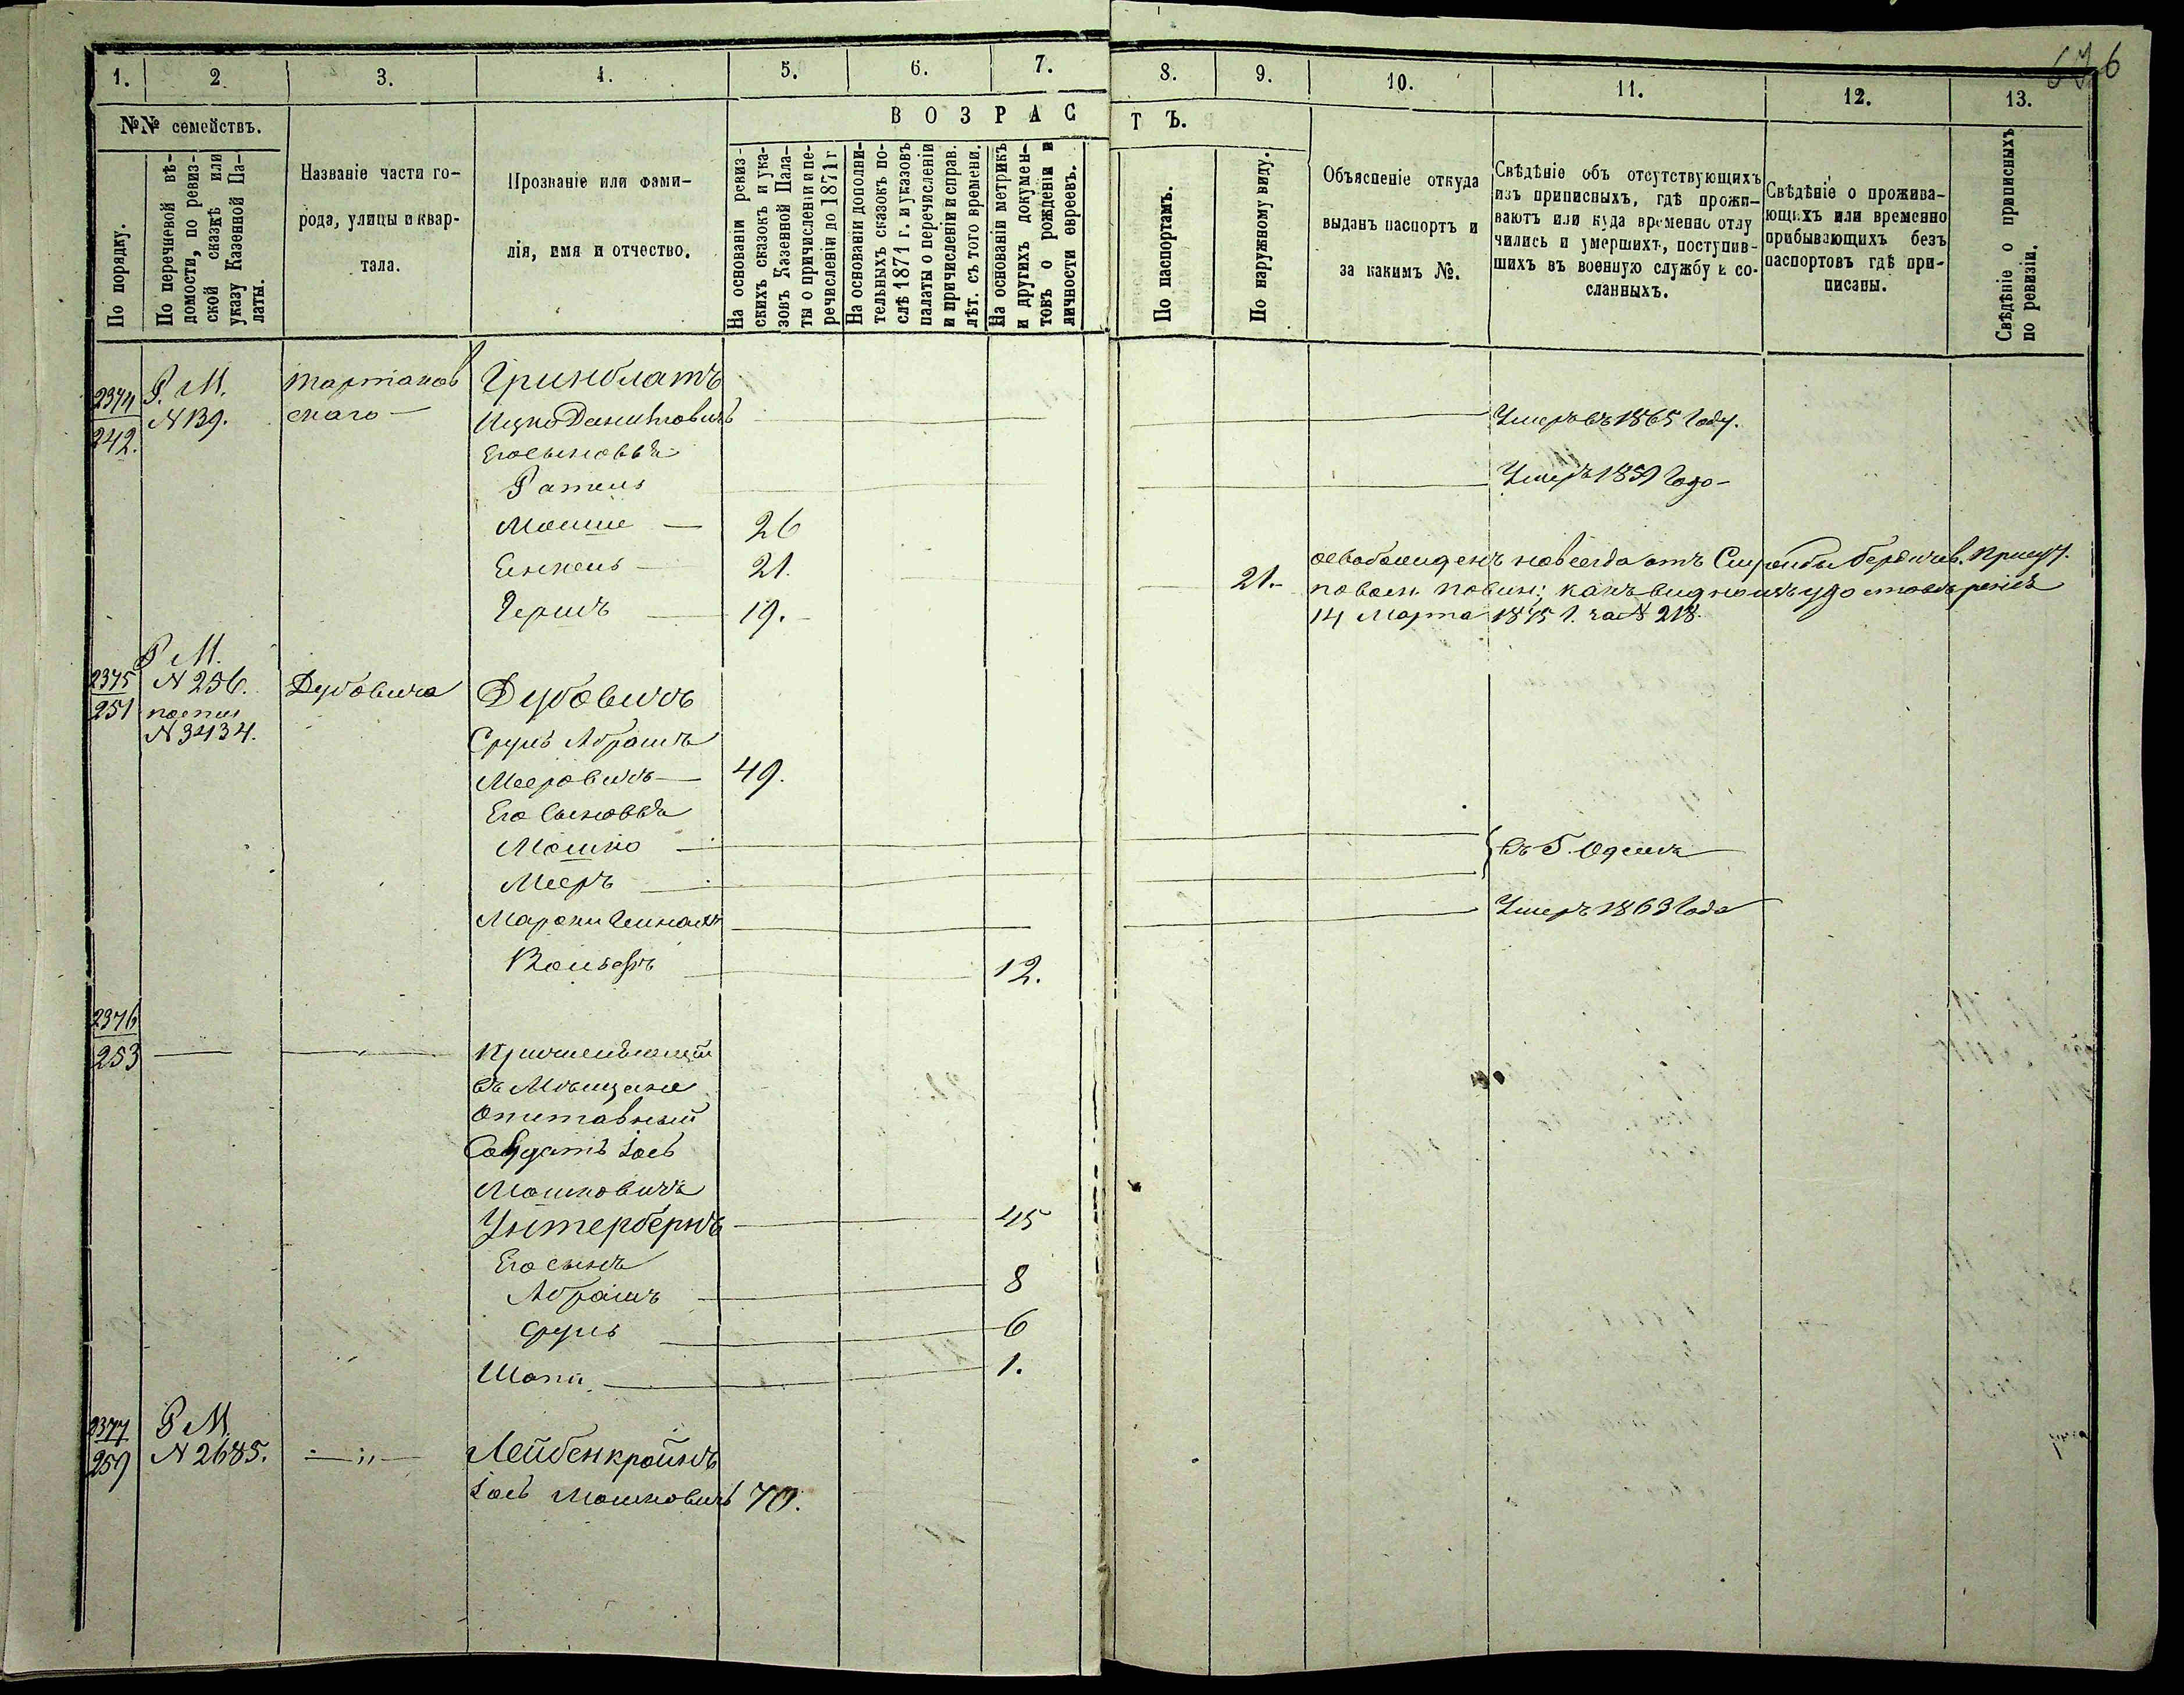 636
1. 2 3. 4. 5. 6. 7. 8. 9. 10. 11. 12. 13.
№№ семействъ.
ВОЗРАСТЪ.
По порядку.
По перечневой вѣ-
домости, по ревиз-
ской сказкѣ или
указу Казенной Па-
латы.
Названіе части го-
рода, улицы и квар-
тала.
Прозваніе или фами-
лія, имя и отчество.
На основаніи ревиз-
скихъ сказокъ и ука-
зовъ Казенной Пала-
ты о причисленіи и пе-
речисленіи до 1871 г
На основаніи дополни-
тельныхъ сказокъ по-
слѣ 1871 г. и указовъ
палаты о перечисленіи
и причисленіи и справ.
лѣт. съ того времени.
На основаніи метрикъ
и другихъ докумен-
товъ о рожденіи и
личности евреевъ.
По паспортамъ.
По наружному виду.
Объясненіе откуда
выданъ паспортъ и
за какимъ №.
Свѣдѣніе объ отсутствующихъ
изъ приписныхъ, гдѣ прожи-
ваютъ или куда временно отлу
чились и умершихъ, поступив-
шихъ въ военную службу и со-
сланныхъ.
Свѣдѣніе о прожива-
ющихъ или временно
прибывающихъ безъ
паспортовъ гдѣ при-
писаны.
Свѣдѣніе о приписныхъ
по ревизіи.
2374 Р. М. Тартаков Гринблатъ
242. N 139. скаго — Ицко Даниловичъ Умеръ въ 1865 Году.
Его сыновья
Фатель Умеръ 1859 Года —
Мошше — 26
Енкель — 21. 21. — освобожденъ навсегда отъ Службы Бердичев. Присут.
по воен. повин; какъ видно изъ удостовѣренія
Гершъ — 19. 14 Марта 1875 г. за N 218.
Р М.
2375 N 256. Дубовича Дубовичъ
251 N 3434.
Сруль Абрамъ
Мееровичъ — 49.
Его Сыновья
Мошко — въ Г. Одессѣ
Мееръ —
Умеръ 1863 Года
Вольфъ 12.
2376
253 — — Причисляющійся
въ Мѣщане
Отставный
Солдатъ Іось
Мошковичъ
Унтербергъ — 45
Его сынъ
Абрамъ — 8
Сруль — 6
1.
2377 Р М.
259 N 2685. — „ — Лейбенкройнъ
Іось Мошковичъ 70.